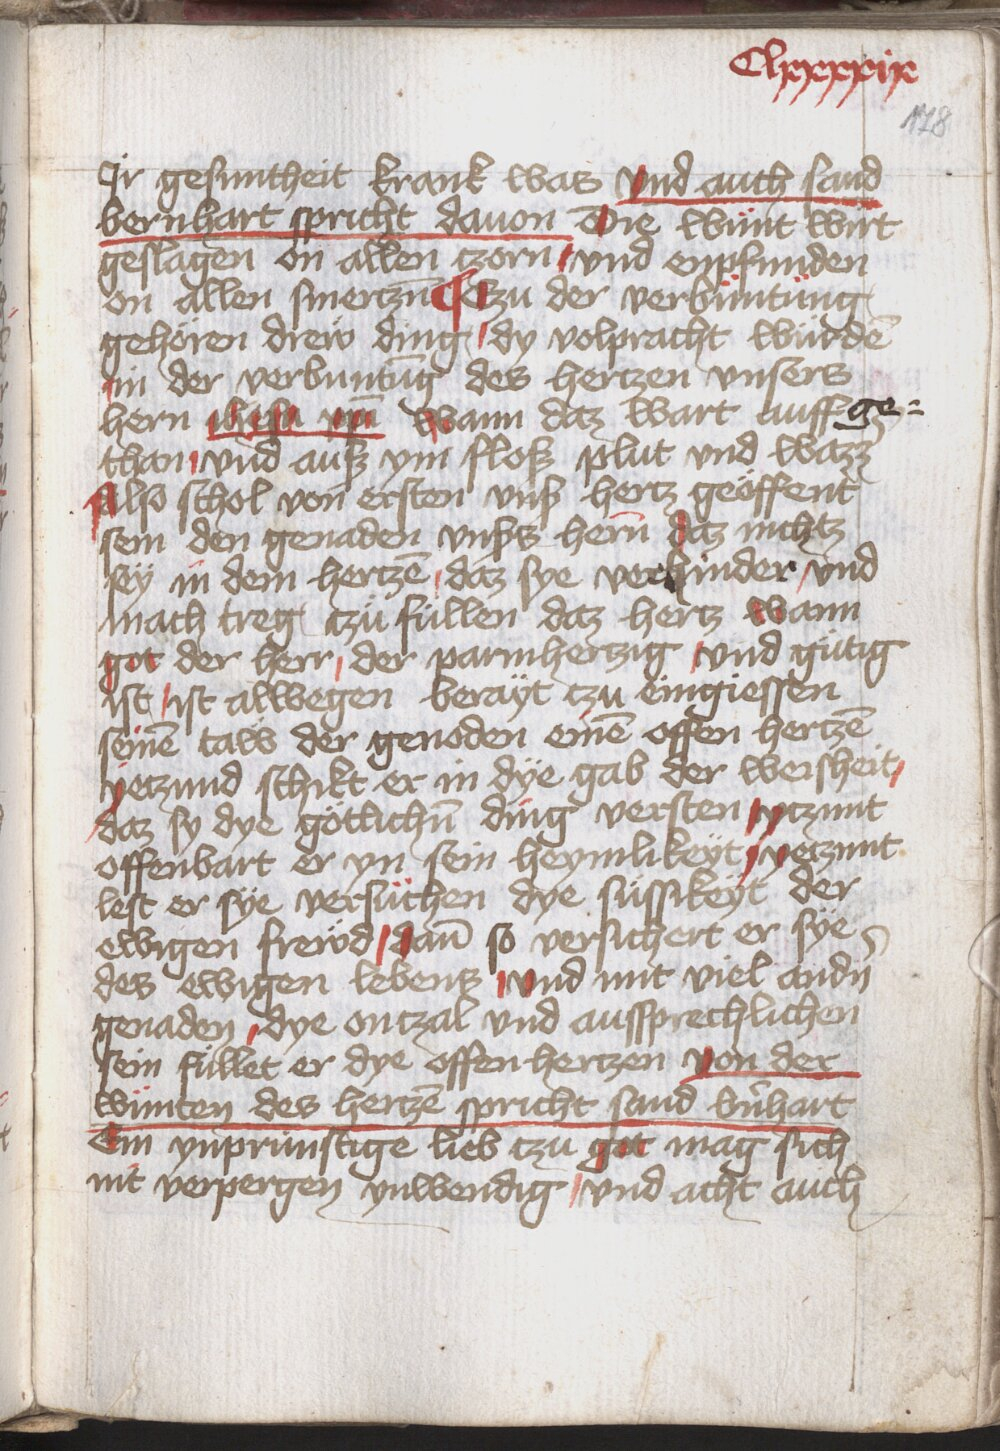 Clxxxxix
178
Ir gesuntheit krank was vnd auch sand
bernhart spricht dauon Die wunt wirt
geslagen on allen czorn / vnd empfunden
on allen smertzn̄ Czu der verbüntüng
gehören drew ding / dy volpracht würdē
in der verbuntūg des hertzen vnsers
hern ihesu xp̄i Wann daz wart auff ge=
than / vnd ausz ym flosz plut vnd wazz
Also schol von ersten vnsz hertz geöffent
sein den genaden vnsers hern̄ daz nichtz
sey in dem hertzē / daz sye verhinder / vnd
mach treg czü füllen daz hertz Wann
got der herr / der parmhertzig / vnd gütig
ist / ist allwegen berayt czu eingiessen
seinē taw der genoden einē offen hertzē
yetzund schikt er in dye gab der weisheit /
daz sy dye götlichn̄ ding versten / ytzunt
offenbart er yn sein heymlikeyt / yetzunt
lest er sye versüchen dye süssikeyt der
ewigen frewd / dan̄ so versichert er sye
des ewigen lebens / vnd mit viel andn̄
genaden / dye ontzal vnd aussprechlichen
sein füllet er dye offen hertzen von der
wunten des hertzē spricht sand bn̄hart
Ein ynprunstige lieb czu got mag sich
nit verpergen ynwendig / vnd acht auch